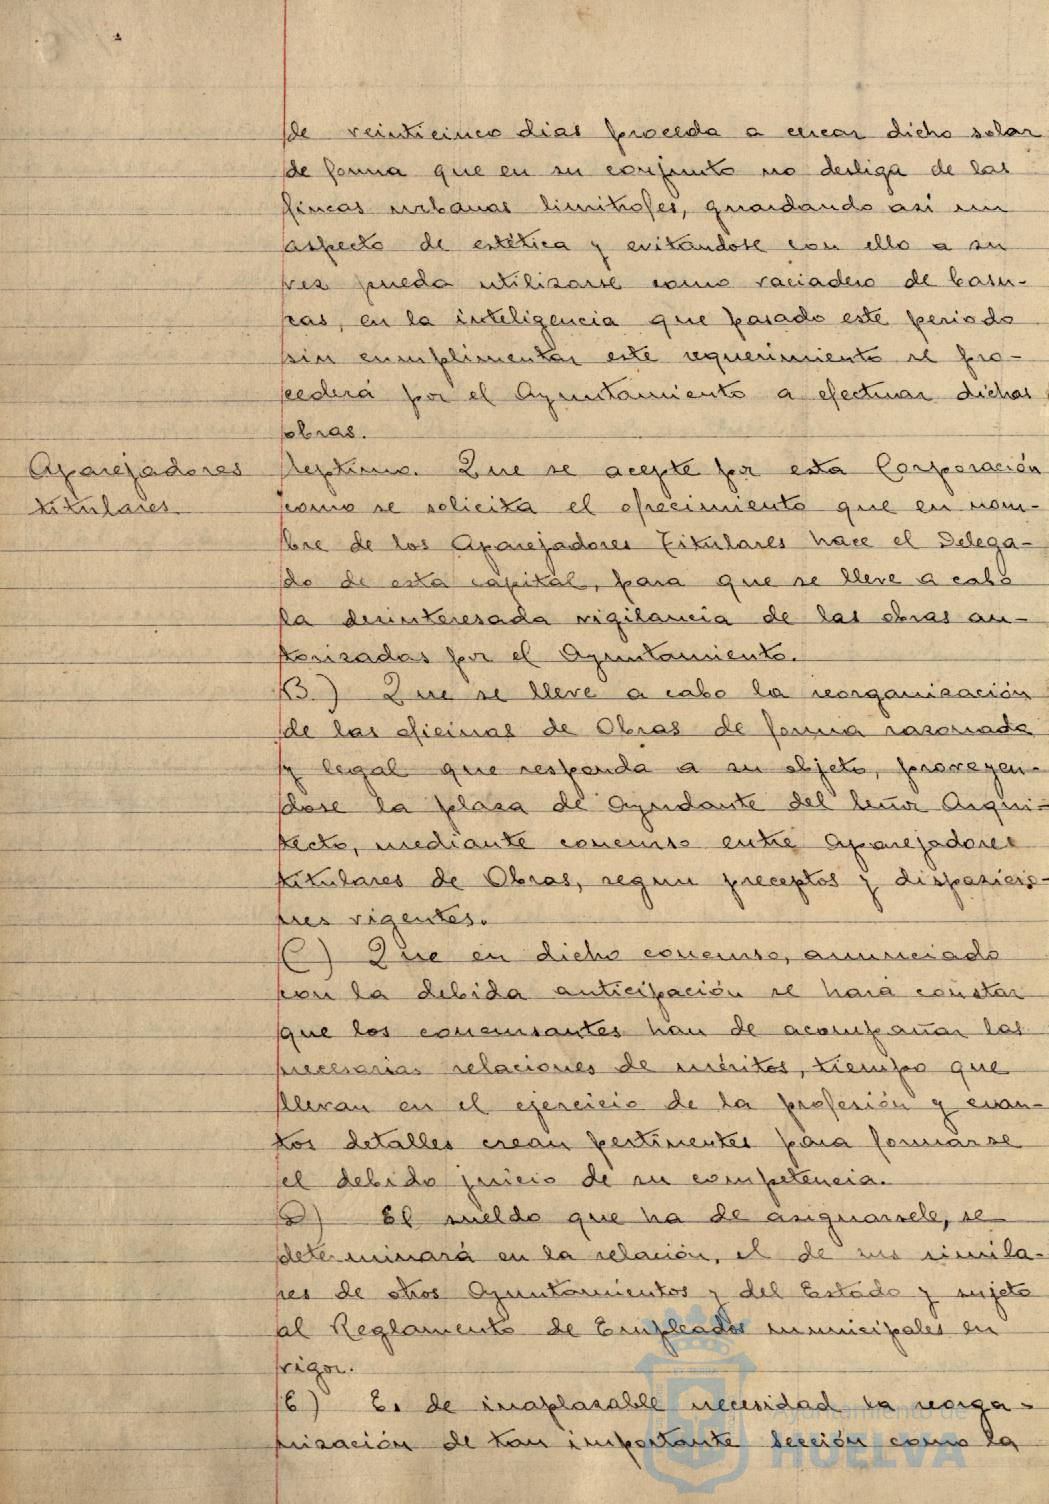 de veinticinco dias proceda a cercar dicho solar
de forma que en su conjunto no desdiga de las
fincas urbanas limitrofes, guardando asi un
aspecto de estética y evitandose con ello a su
vez pueda utilizarse como vaciadero de basu-
ras, en la inteligencia que pasado este periodo
sin cumplimentar este requerimiento se pro-
cederá por el Ayuntamiento a efectuar dichas
obras.
Aparejadores
titulares
Septimo. Que se acepte por esta Corporación
como se solicita el ofrecimiento que en nom-
bre de los Aparejadores Titulares hace el Delega-
do de esta capital, para que se lleve a cabo
la desinteresada vigilancia de las obras au-
torizadas por el Ayuntamiento.
B) Que se lleve a cabo la reorganización
de las oficinas de Obras de forma razonada
y legal que responda a su objeto, proveyen-
dose la plaza de Ayudante del Señor Arqui-
tecto, mediante concurso entre Aparejadores
titulares de Obras, segun preceptos y disposicio-
nes vigentes.
C) Que en dicho concurso, anunciado
con la debida anticipación se hará constar
que los concursantes han de acompañar las
necesarias relaciones de méritos, tiempo que
llevan en el ejercicio de la profesión y cuan-
tos detalles crean pertinentes para formarse
el debido juicio de su competencia.
D) El sueldo que ha de asignarsele, se
determinará en la relación, el de sus simila-
res de otros Ayuntamientos y del Estado y sujeto
al Reglamento de Empleados municipales en
vigor.
E) Es de inaplazable necesidad la reorga-
nización de tan importante Sección como la
Ayuntamiento de
HUELVA